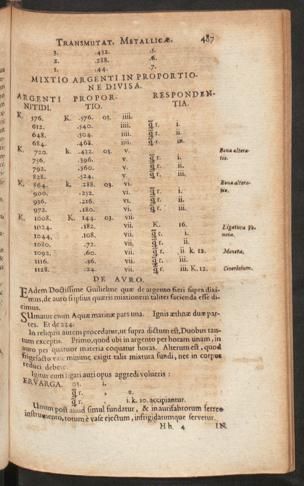 TRANSMUTAT. METALLICÆ. 487
3. .432. .5.
2. .288. .6.
1. .44. .7.
MIXTIO ARGENTI IN PROPORTIO-
NE DIVISA.
ARGENTI PROPOR- RESPONDEN-
NITIDI. TIO. TIA.
K. 576. K. .576. 03. iiii.
612. .540. iiii. i.
648. .504. iiii. ii.
684. .468. iiii. iii.
K. 720. k. .432. 03. v. Bona altera-
756. .396. v. i. tio.
792. .360. v. ii.
828. .324. v. iii.
K. 864. k. 288. 03. vi. Bona altera-
900. .252. vi. i. tio.
936. .216. vi. ii.
972. .180. vi. iii.
K. 1008. K. 144. 03. vii.
1024. .182. vii. K. 16.
1044. .108. vii. i.
1080. .72. vii. ii.
1092. .60. vii. ii k. 12. Moneta.
1116. .36. vii. iii.
1128. .24. vii. iii. K. 12.
DE AVRO.
EAdem Doctissime Guilielme quæ de argento fieri supra dixi-
mus, de auro si ipsius quæris mixtionem taliter facienda esse di-
cimus.
SUmatur enim Aquæ marinæ pars una. Ignis æthnæ duæ par-
tes. Et de 224.
In reliquis autem procedatur, ut supra dictum est, Duobus tan-
tum exceptis. Primo, quod ubi in argento per horam unam, in
auro per quatuor materia coquatur horas. Alterum est, quod
frigefacto vase minime exigit talis mixtura fundi, nec in corpus
reduci debere.
Igitur cum ligati auti opus aggredi volueris:
i. k. 10. accipiantur.
Unum post aliud simul fundatur, & in aurifabrorum ferreo
instrumento, totum è vase ejectum, infrigidatumque servetur.
Hh 4 IN